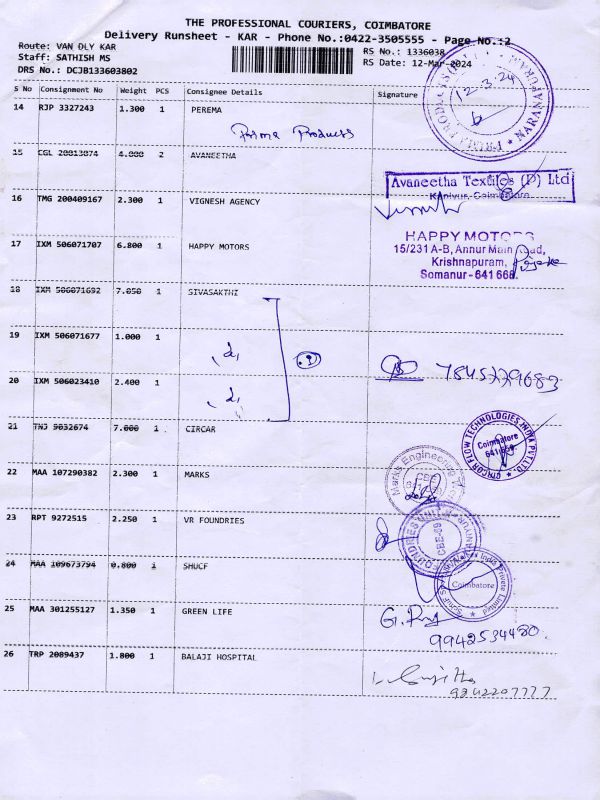 THE PROFESSIONAL COURIERS, COIMBATORE
Delivery Runsheet - KAR - Phone No.:0422-3505555 - Page No.:2
Route: VAN DLY KAR
Staff: SATHISH MS
DRS No.: DCJB133603802
RS No.: 1336038
RS Date: 12-Mar-2024
S No Consignment No Weight PCS Consignee Details Signature
14 RJP 3327243 1.300 1 PEREMA
Prima Products
12-3-24
NARANAPURAM
15 CGL 20813874 4.000 2 AVANEETHA
Avaneetha Textiles (P) Ltd
Kaniyur, Coimbatore
16 TMG 200409167 2.300 1 VIGNESH AGENCY
17 IXM 506071707 6.800 1 HAPPY MOTORS
HAPPY MOTORS
15/231 A-B, Annur Main Road,
Krishnapuram,
Somanur - 641 668.
18 IXM 506071692 7.050 1 SIVASAKTHI
19 IXM 506071677 1.000 1
20 IXM 506023410 2.400 1
21 TNJ 9032674 7.000 1 CIRCAR
CIRCOR FLOW TECHNOLOGIES INDIA PVT LTD.
Coimbatore
22 MAA 107290382 2.300 1 MARKS
Marks Engineering
23 RPT 9272515 2.250 1 VR FOUNDRIES
FOUNDRIES UNIT
24 MAA 109673794 0.800 1 SHUCF
India Private Limited
Coimbatore
25 MAA 301255127 1.350 1 GREEN LIFE
9942534480
26 TRP 2089437 1.800 1 BALAJI HOSPITAL